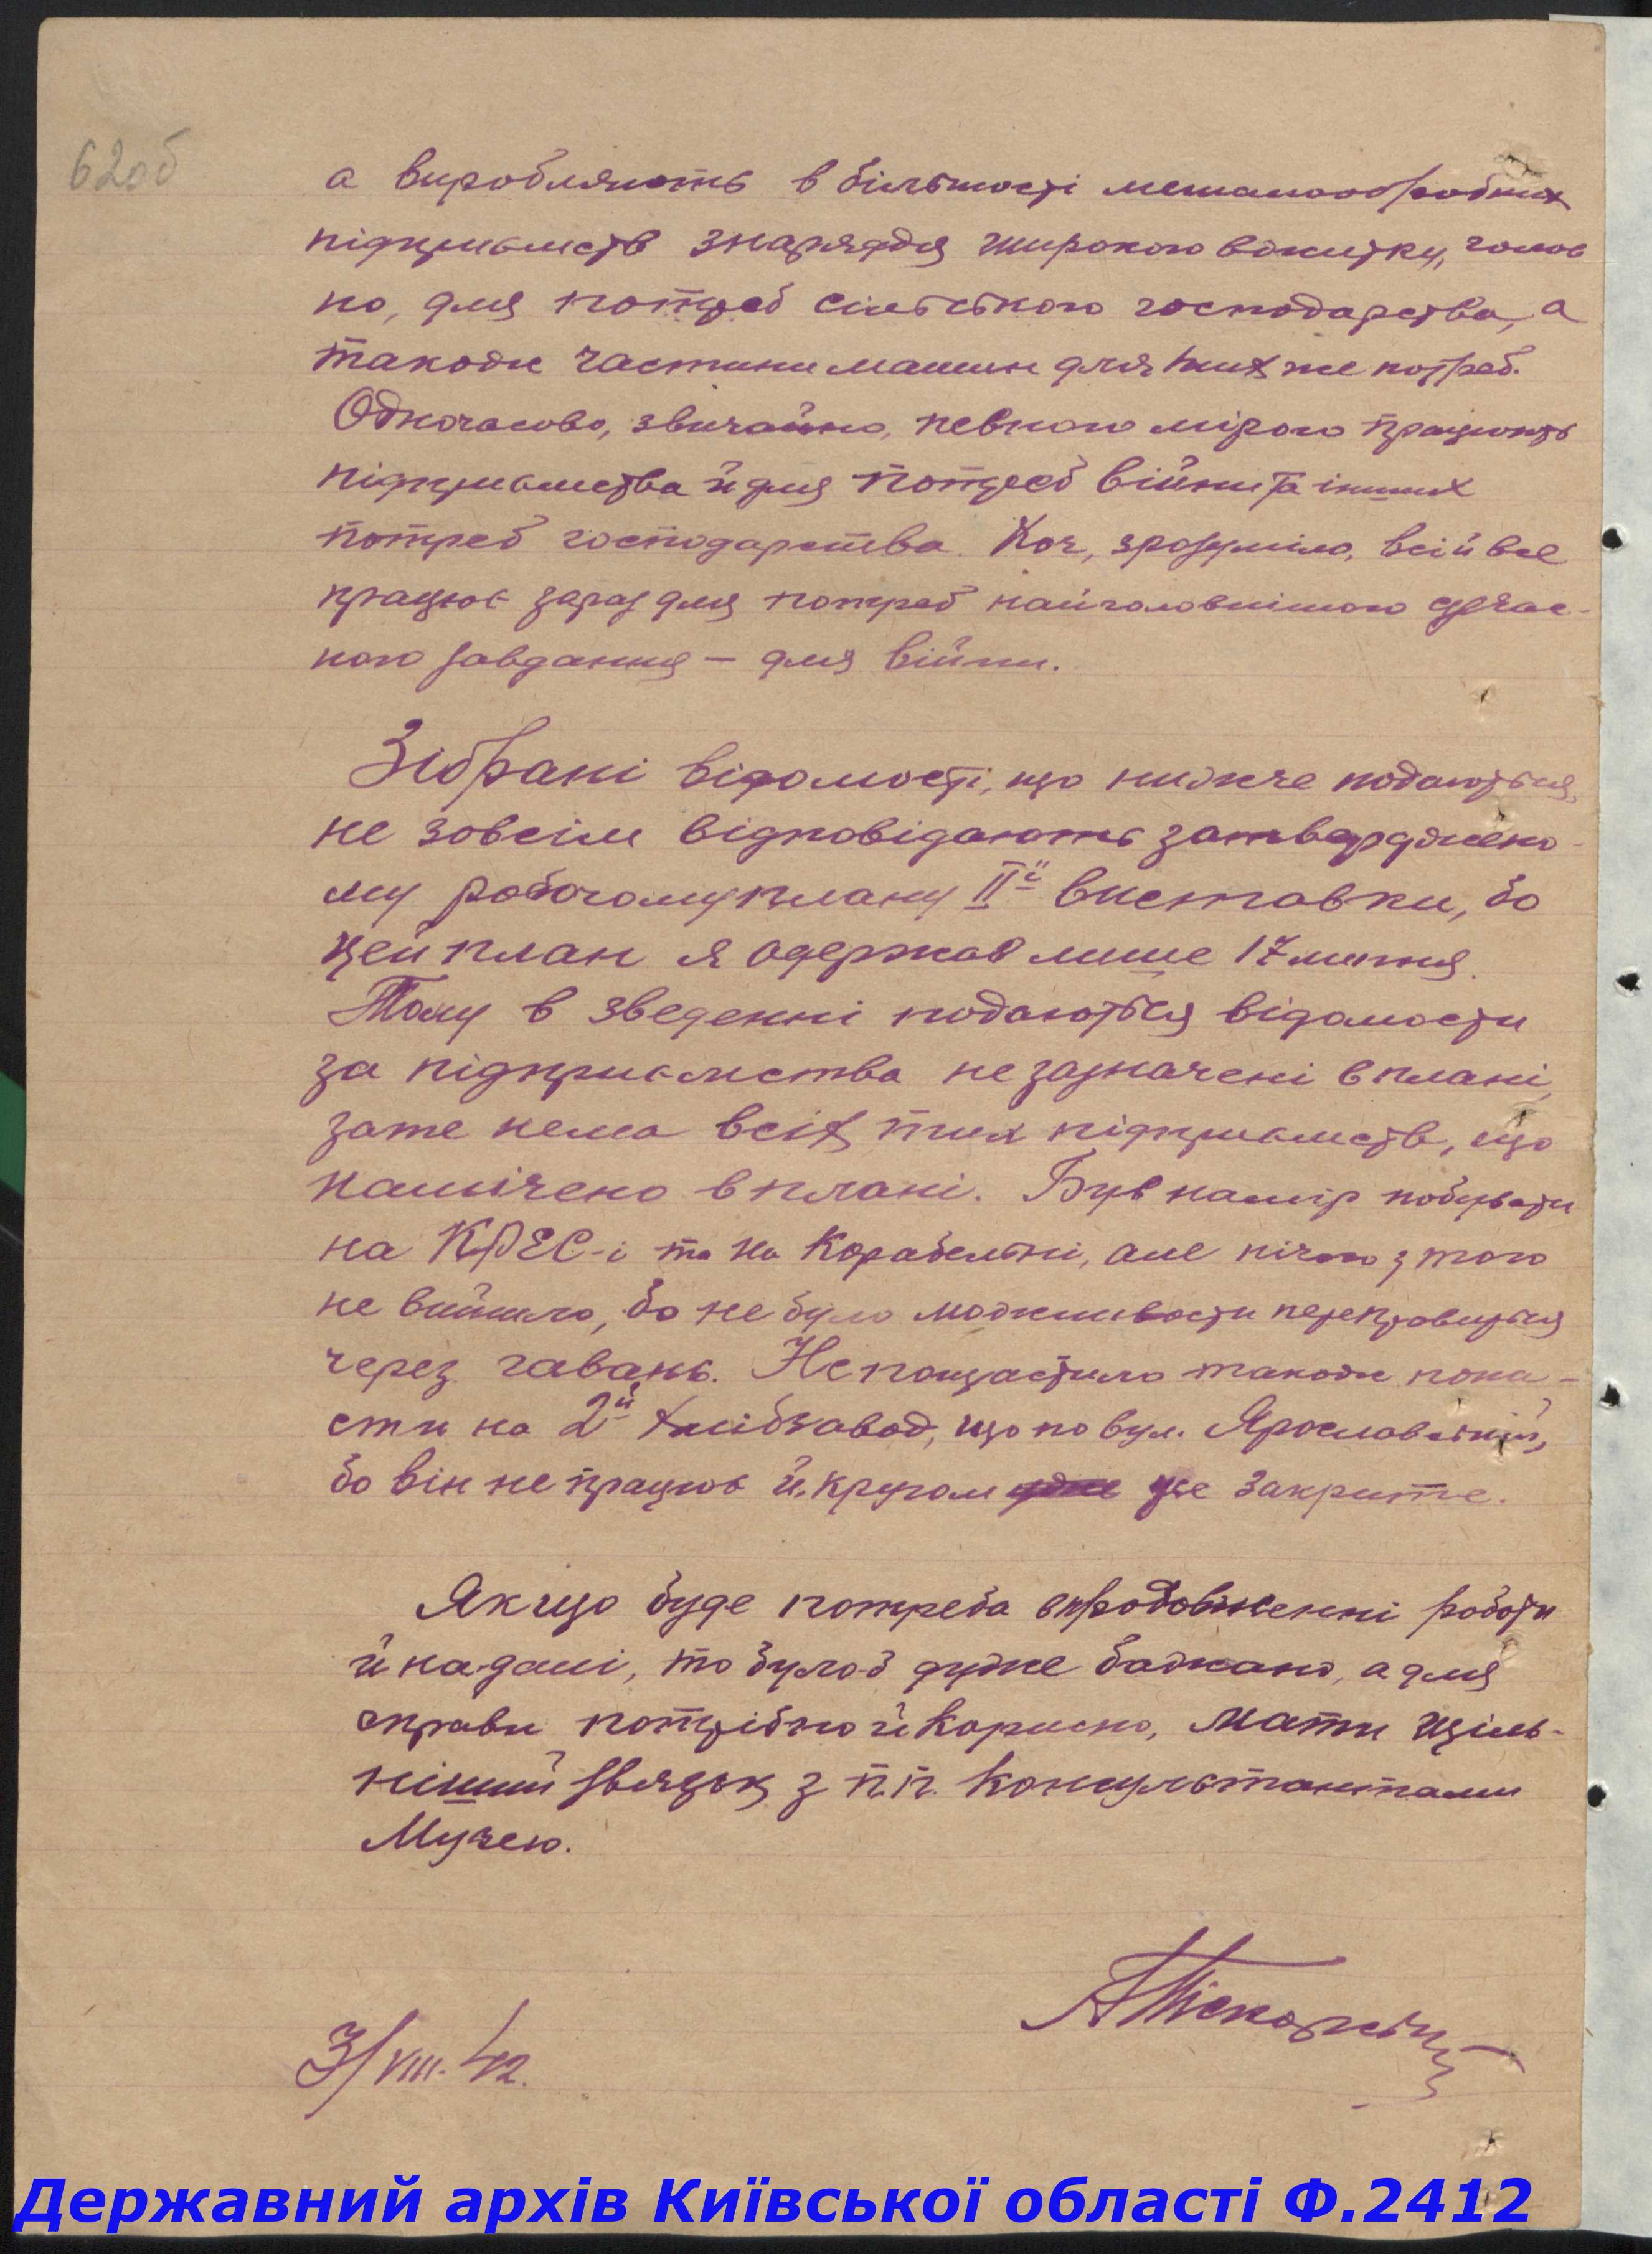 62об
а виробляють в більшості металообробних
підприємств знаряддя широкого вжитку, голов
но, для потреб сільського господарства, а
також частини машин для тих же потреб.
Одночасово, звичайно, певною мірою працюють
підприємства й для потреб війни та інших
потреб господарства. Хоч, зрозуміло, всі й все
працює зараз для потреб найголовнішого сучас-
ного завдання – для війни.
Зібрані відомості, що нижче подаються,
не зовсім відповідають затвердженно-
му робочому плану ІІ-ї виставки, бо
цей план я одержав лише 17 липня.
Тому в зведенні подаються відомости
за підприємства не зазначені в плані,
зате нема всіх тих підприємств, що
намічено в плані. Був намір побувати
на КРЕС-і та на Корабельні, але нічого з того
не вийшло, бо не було можливости переправитися
через гавань. Не пощастило також попа-
сти на 2й Хлібзавод, що по вул. Ярославській,
бо він не працює й кругом це закрите.
Якщо буде потреба в продовженні роботи
й надалі, то було-б дуже бажано, а для
справи потрібно й корисно, мати щіль-
ніший звязок з п.п. консультантами
Музею.
3/VIII-42.
Державний архів Київської області Ф.2412